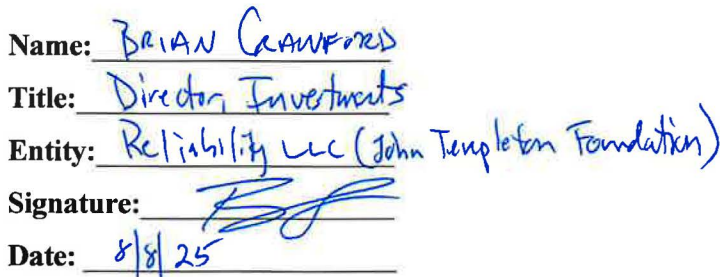 Name: BRIAN CRAWFORD
Title: Director, Investments
Entity: Reliability LLC (John Templeton Foundation)
Signature:
Date: 8/8/25